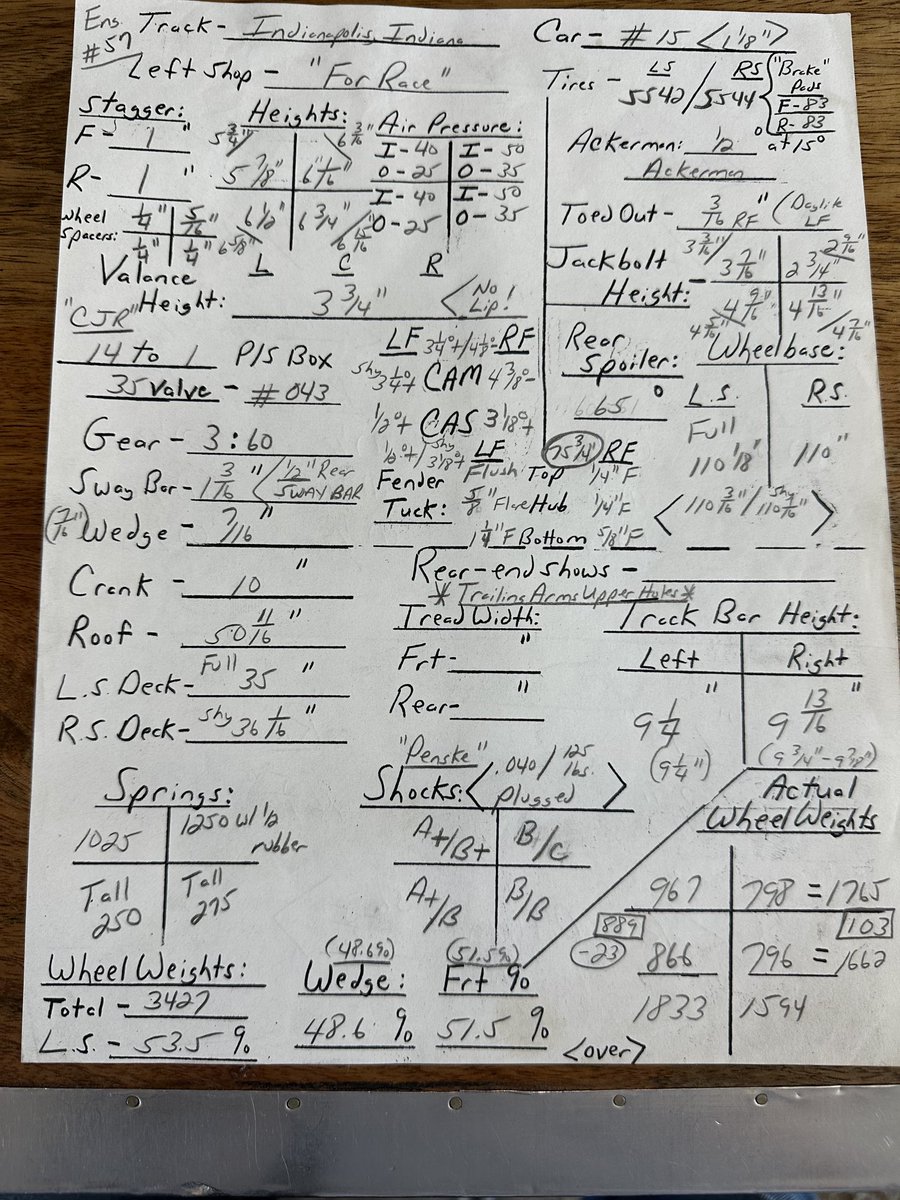 Eng. #57
Track- Indianapolis, Indiana
Car- #15 <1 1/8">
Left Shop - "For Race"
Tires - LS 5542 / RS 5544
"Brake" Pads
F-83
R-83
at 15°
Stagger:
F- 1"
R- 1"
Wheel Spacers: 1/4" 5/16"
1/4" 1/4"
Heights:
5 3/4" 6 3/16"
5 7/8" 6 1/16"
6 1/2" 6 3/4"
6 5/8" 6 15/16"
Air Pressure:
I-40 I-50
O-25 O-35
I-40 I-50
O-25 O-35
Ackerman: 1/2°
Ackerman
Toed Out- 3/16" RF (Daylite LF
Jackbolt Height:
3 3/16" 2 9/16"
3 7/16" 2 3/4"
4 9/16" 4 13/16"
4 5/16" 4 7/16"
Valance Height:
L C R
3 3/4" <No Lip!
"CJR"
14 to 1 P/S Box
35 Valve - #043
LF 3 1/4°+/4 1/8°- RF
shy 3 1/4°+ CAM 4 3/8°-
1/2°+ CAS 3 1/8°+
1/2°+/shy 3 1/8°+
Rear Spoiler:
65°
75 3/4"
Wheelbase:
L.S. R.S.
Full 110 1/8" 110"
<110 3/16" / shy 110 1/16">
Gear- 3:60
Sway Bar- 1 3/16" <1/2" Rear SWAY BAR
(7/16") Wedge- 7/16"
Fender Tuck:
LF RF
Flush Top 1/4"F
5/8" Flare Hub 1/4"F
1 1/4"F Bottom 5/8"F
Crank - 10"
Roof - 50 11/16"
L.S. Deck- Full 35"
R.S. Deck- shy 36 1/16"
Rear-end shows -
* Trailing Arms Upper Holes *
Tread Width:
Frt- "
Rear- "
Track Bar Height:
Left Right
9 1/4" 9 13/16"
(9 1/4") (9 3/4"-9 7/8")
Springs:
1025 1250 w/ 1/2 rubber
Tall 250 Tall 275
"Penske"
Shocks: <.040/125 lbs. plugged>
A+/B+ B/C
A+/B B/B
Actual Wheel Weights
967 798 = 1765
889 103
-23 866 796 = 1662
1833 1594
Wheel Weights:
Total - 3427
L.S. - 53.5 %
(48.6%)
Wedge:
48.6 %
(51.5%)
Frt %
51.5 %
<over>